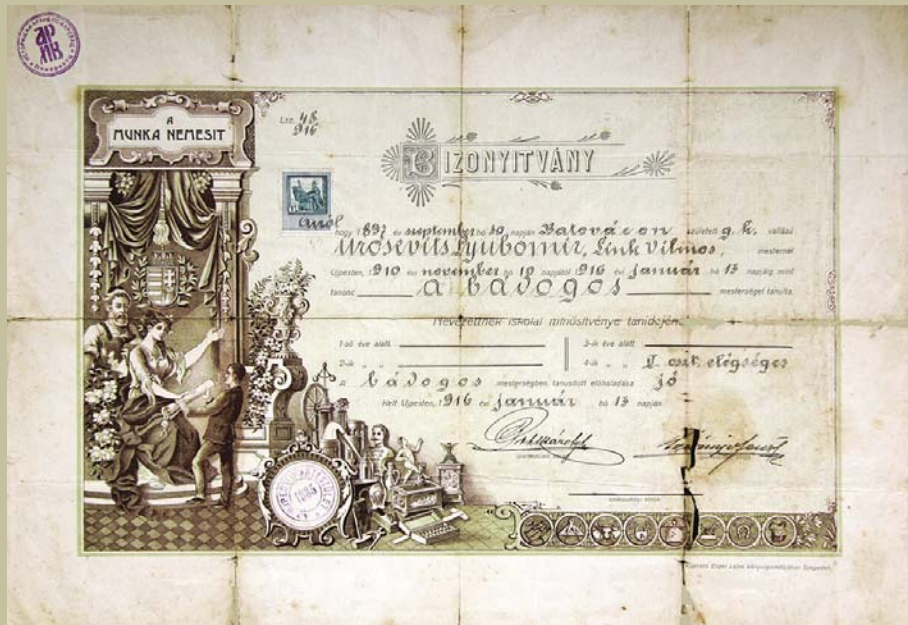 А
MUNKA NEMESIT
Lsz. 48
916
BIZONYITVÁNY
arról hogy 1897 év september hó 30 napján Batovácon született g. k. vallású
Urosevits Lyubomir, Link Vilmos, mesternél
Ujpesten, 1910 évi november hó 18 napjától 1916 évi január hó 13 napjáig mint
tanonc a bádogos mesterséget tanulta.
Nevezettnek iskolai minősítvénye tanidején:
1-ső éve alatt
3-ik éve alatt
2-ik " "
4-ik " " I. oszt. elégséges
A bádogos mesterségben tanusított előhaladása jó
Kelt Ujpesten, 1916 évi január hó 13 napján.
1885
Szegeden.